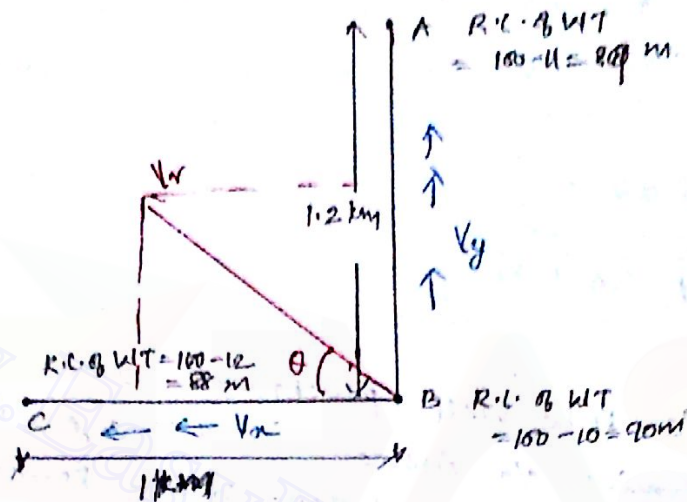 A R.L. of WT
= 100-11 = 89 m
Vr
1.2 km
Vy
R.L. of WT = 100-12
= 88 m
θ
B R.L. of WT
= 100-10 = 90m
C
Vx